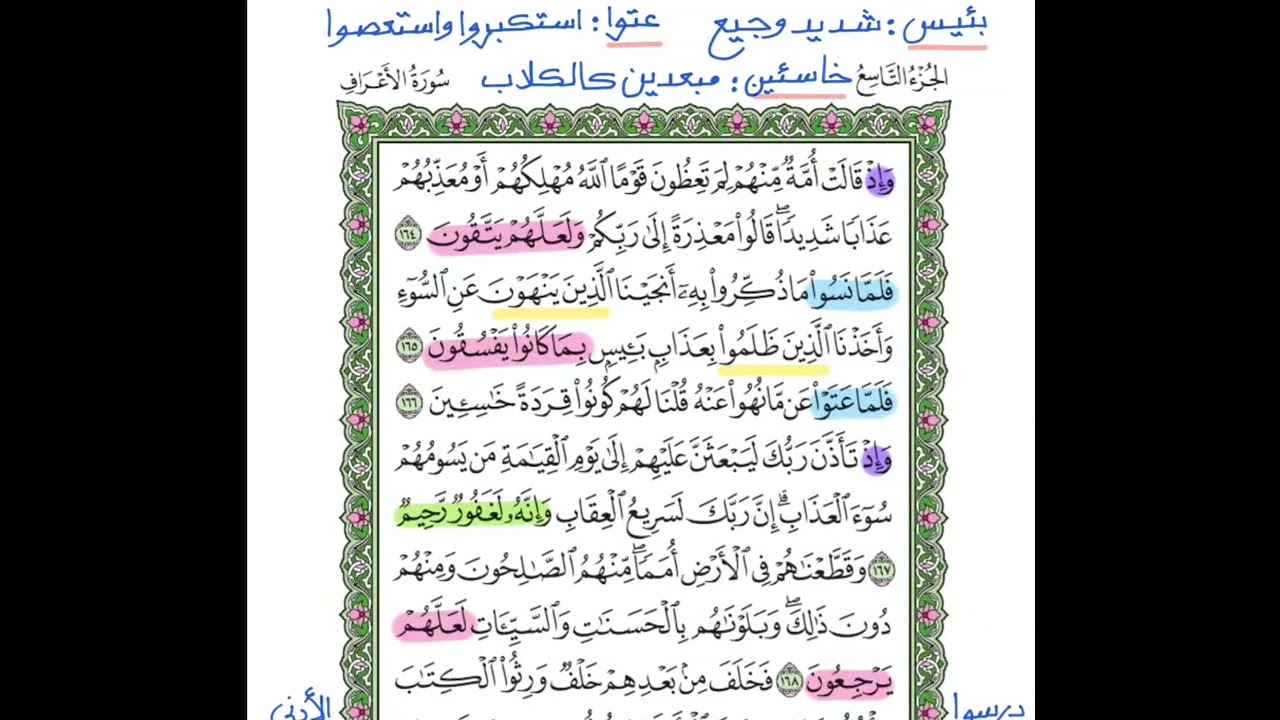 بئيس: شديد وجيع عتوا: استكبروا واستعصوا
الجُزْءُ التَّاسِعُ خاسئين: مبعدين كالكلاب سُورَةُ الأَعْرَافِ
وَإِذْ قَالَتْ أُمَّةٌ مِّنْهُمْ لِمَ تَعِظُونَ قَوْمًا ٱللَّهُ مُهْلِكُهُمْ أَوْ مُعَذِّبُهُمْ
عَذَابًا شَدِيدًاۖ قَالُواْ مَعْذِرَةً إِلَىٰ رَبِّكُمْ وَلَعَلَّهُمْ يَتَّقُونَ ١٦٤
فَلَمَّا نَسُواْ مَا ذُكِّرُواْ بِهِۦٓ أَنجَيْنَا ٱلَّذِينَ يَنْهَوْنَ عَنِ ٱلسُّوٓءِ
وَأَخَذْنَا ٱلَّذِينَ ظَلَمُواْ بِعَذَابِۭ بَـِٔيسِۭ بِمَا كَانُواْ يَفْسُقُونَ ١٦٥
فَلَمَّا عَتَوْاْ عَن مَّا نُهُواْ عَنْهُ قُلْنَا لَهُمْ كُونُواْ قِرَدَةً خَٰسِـِٔينَ ١٦٦
وَإِذْ تَأَذَّنَ رَبُّكَ لَيَبْعَثَنَّ عَلَيْهِمْ إِلَىٰ يَوْمِ ٱلْقِيَٰمَةِ مَن يَسُومُهُمْ
سُوٓءَ ٱلْعَذَابِۗ إِنَّ رَبَّكَ لَسَرِيعُ ٱلْعِقَابِ وَإِنَّهُۥ لَغَفُورٌ رَّحِيمٌ
١٦٧ وَقَطَّعْنَٰهُمْ فِى ٱلْأَرْضِ أُمَمًاۖ مِّنْهُمُ ٱلصَّٰلِحُونَ وَمِنْهُمْ
دُونَ ذَٰلِكَۖ وَبَلَوْنَٰهُم بِٱلْحَسَنَٰتِ وَٱلسَّيِّـَٔاتِ لَعَلَّهُمْ
يَرْجِعُونَ ١٦٨ فَخَلَفَ مِنۢ بَعْدِهِمْ خَلْفٌ وَرِثُواْ ٱلْكِتَٰبَ
درسوا الأدنى